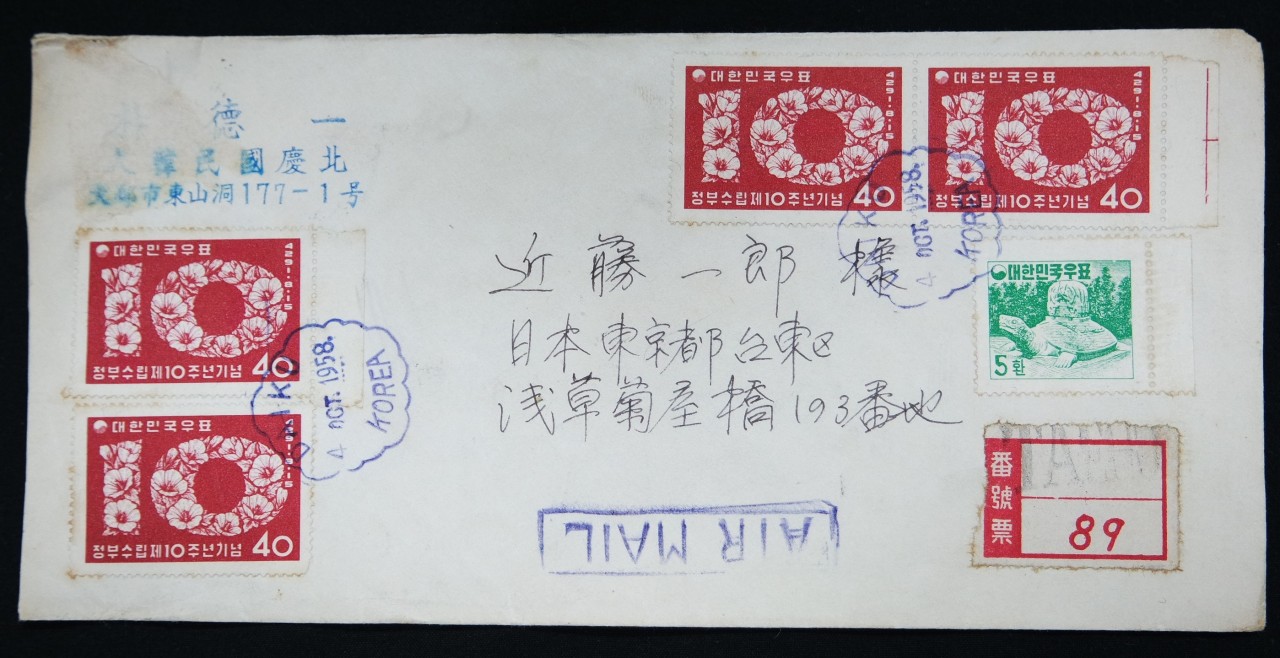 德 一
韓民國慶北
市東山洞177-1号
대한민국우표
4291.8.15
정부수립제10주년기념 40
대한민국우표
4291.8.15
정부수립제10주년기념 40
4 OCT. 1958.
KOREA
대한민국우표
5환
近藤一郎 様
日本東京都台東区
浅草菊屋橋193番地
대한민국우표
4291.8.15
정부수립제10주년기념 40
4 OCT. 1958.
KOREA
대한민국우표
4291.8.15
정부수립제10주년기념 40
AIR MAIL
番號票
89